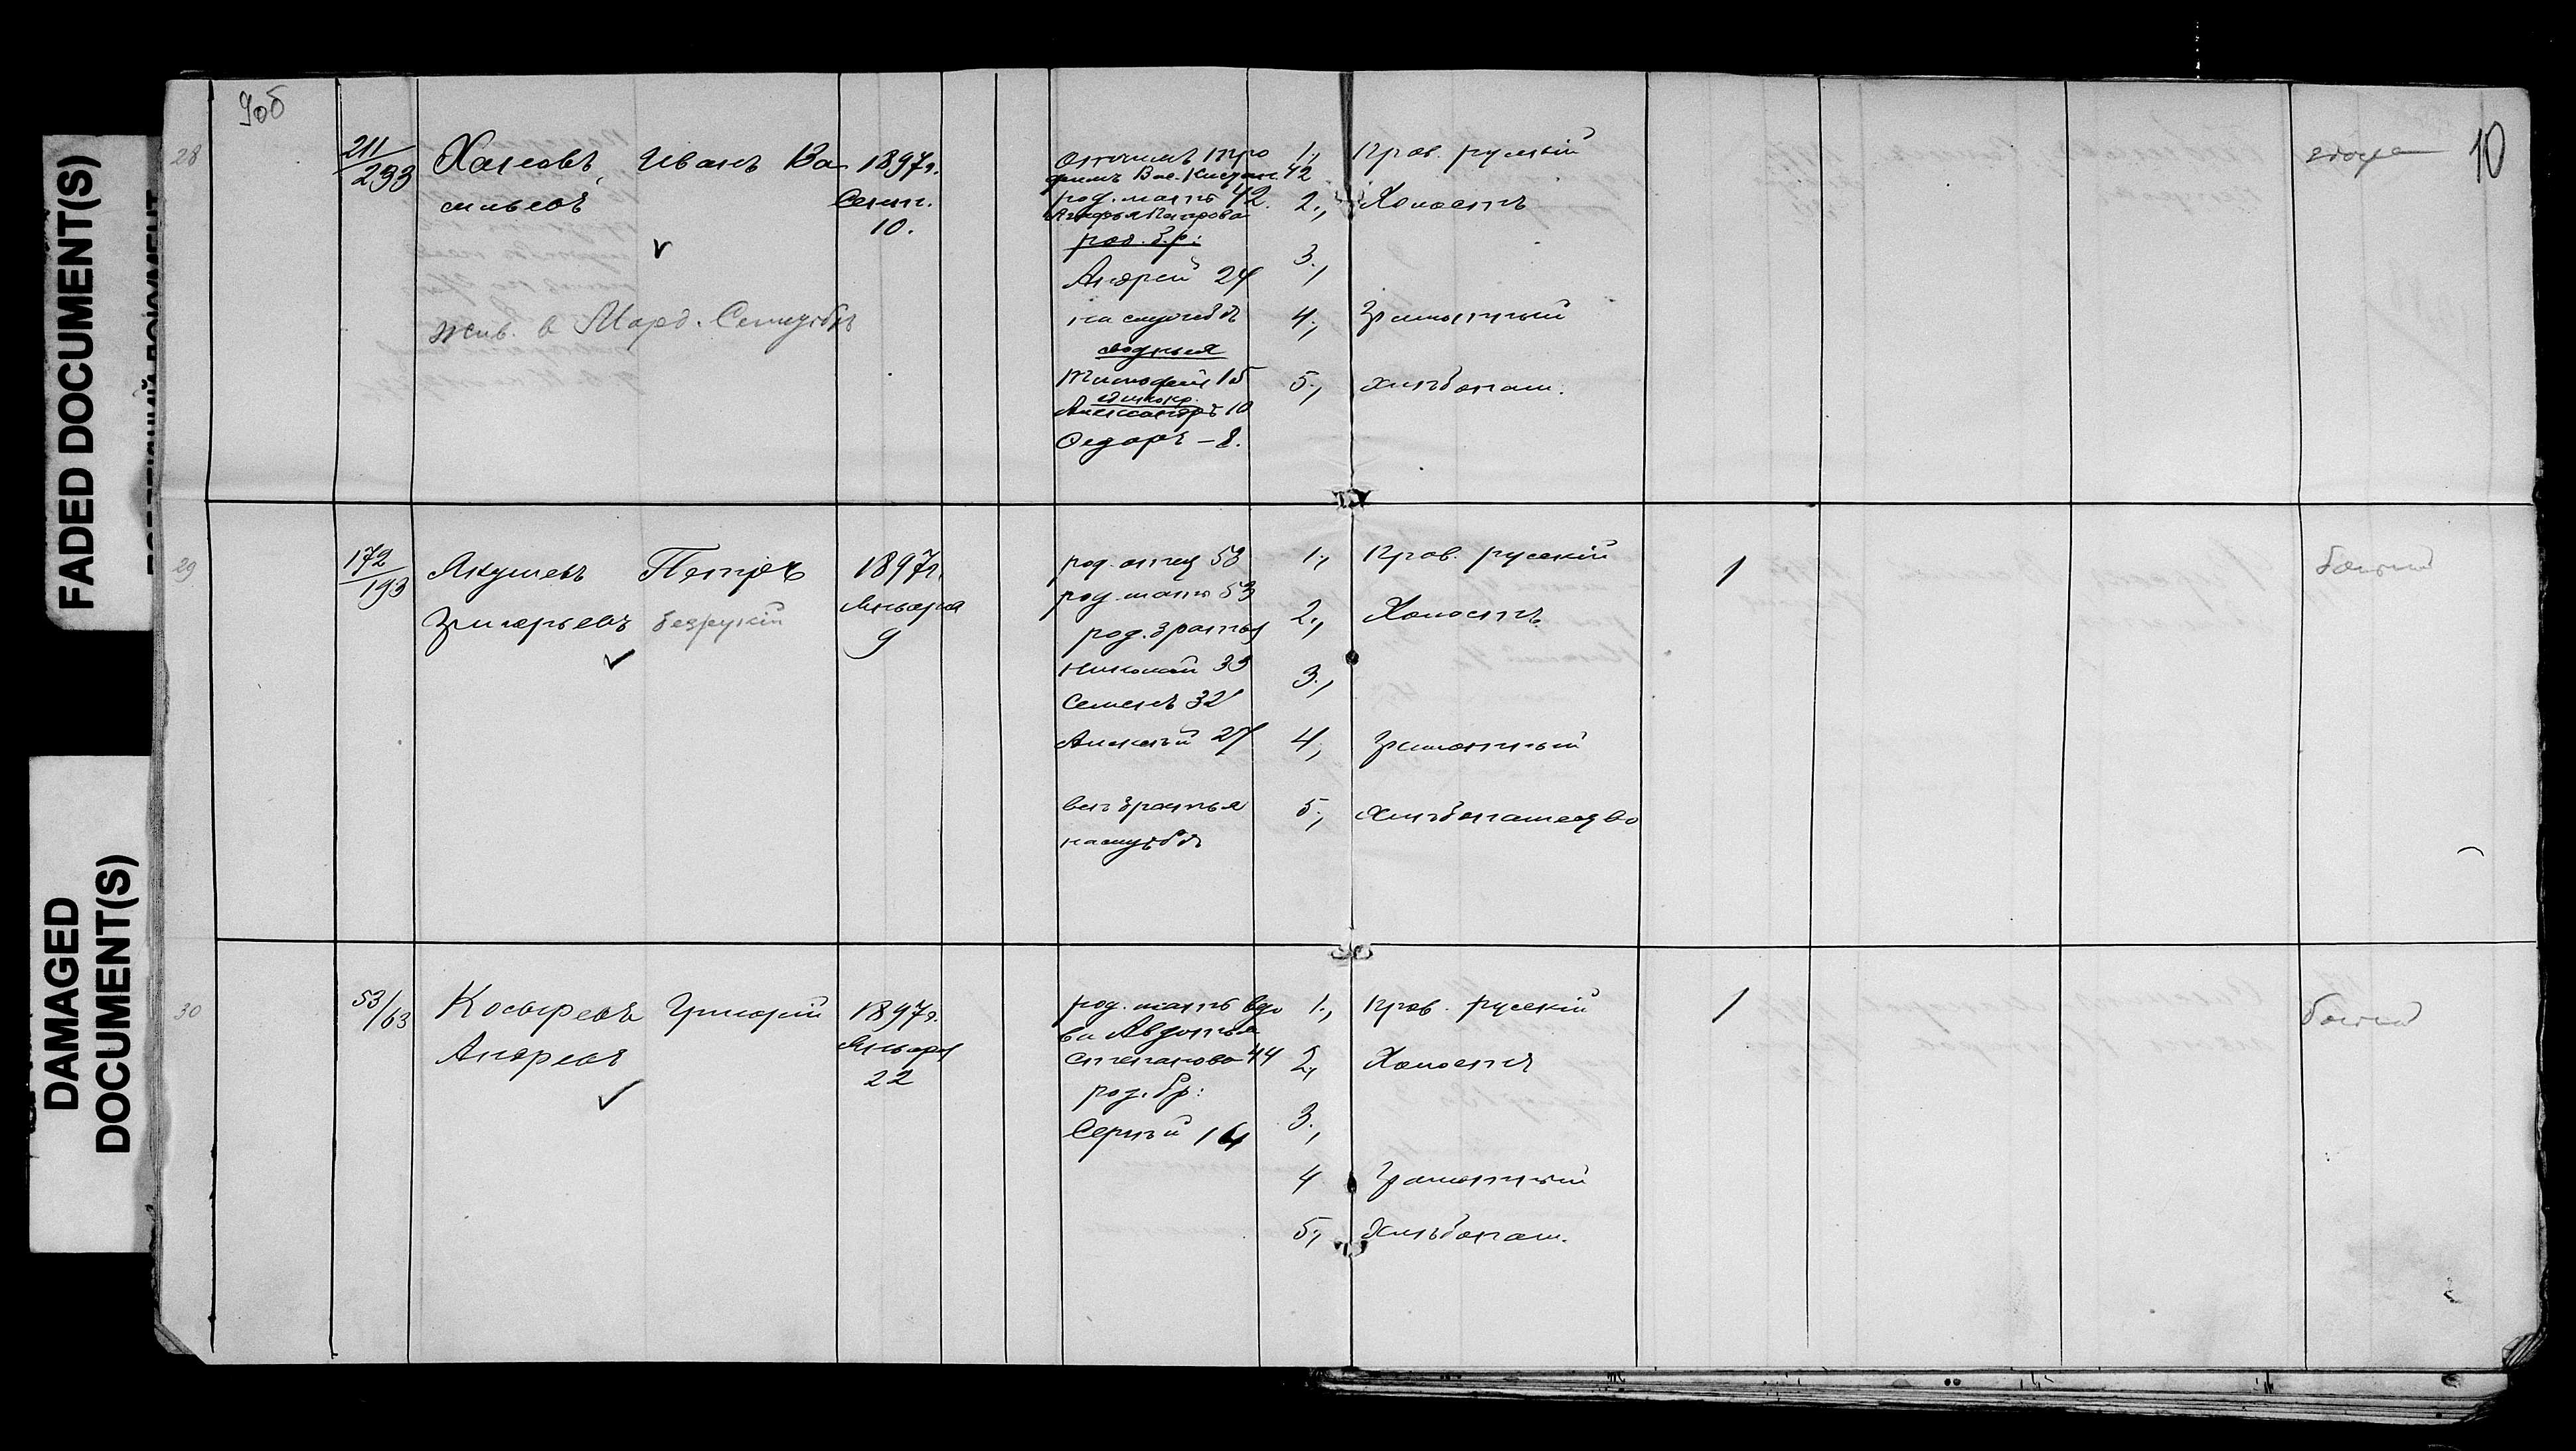 FADED DOCUMENT(S)
DAMAGED
DOCUMENT(S)
9об
10
28
211/293
Иванъ Ва
сильевъ
жив. в Морд.
1897г.
Сент.
10.
отчимъ Тро
фимъ Вас. 42
род. мать 42
род. бр:
Андрей 24
на службѣ
сводные
Тимофей 15
единокр.
Александръ 10
Федоръ – 8.
1., Прав. русскій
2., Холостъ
3.,
4., Грамотный
5., хлѣбопаш.
29
172/193
Якушевъ Петръ
Григорьевъ безрукій
1897г.
Января
9
род. отец 58
род. мать 53
род. братья
Николай 35
Семенъ 32
Алексѣй 27
всѣ братья
на службѣ
1., Прав. русскій
2., Холостъ
3.,
4., Грамотный
5., Хлѣбопашество
1
30
53/63
Косыревъ Григорій
Андреевъ
1897г.
Января
22
род. мать вдо
ва Авдотья
Степанова 44
род. бр:
Сергѣй 14
1., Прав. русскій
2., Холостъ
3.,
4 Грамотный
5., Хлѣбопаш.
1